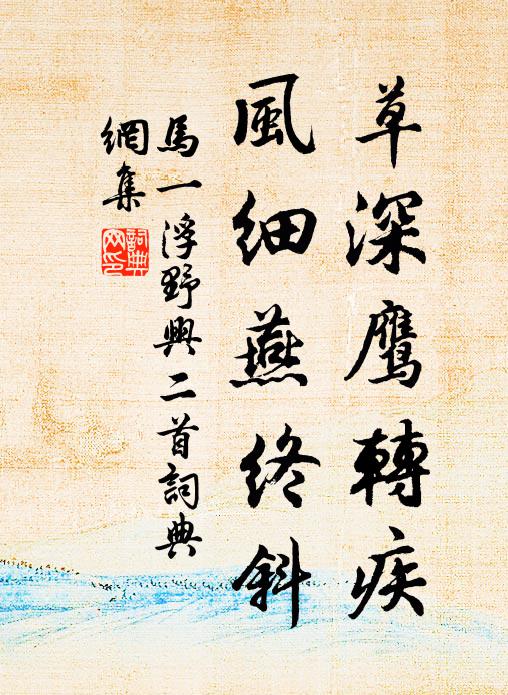 草深鷹轉疾
風細燕終斜
馬一浮野興二首詞典
網集
詞典
网印